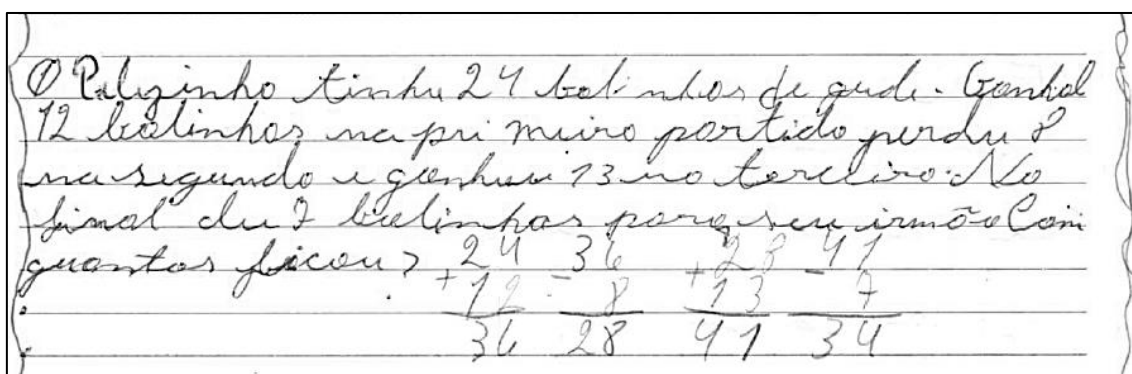 ① Pulguinho tinha 24 bolinhas de gude. Ganhol
12 bolinhas na pri meiro partido perdeu 8
na segundo e ganhou 13 no terceiro. No
final deu 7 bolinhas para seu irmão Com
quantas ficou?
24 36 28 41
+12 - 8 +13 - 7
36 28 41 34